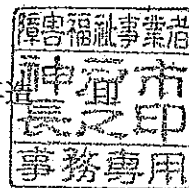 障害福祉事業者
神 市
長之印
事務専用
造